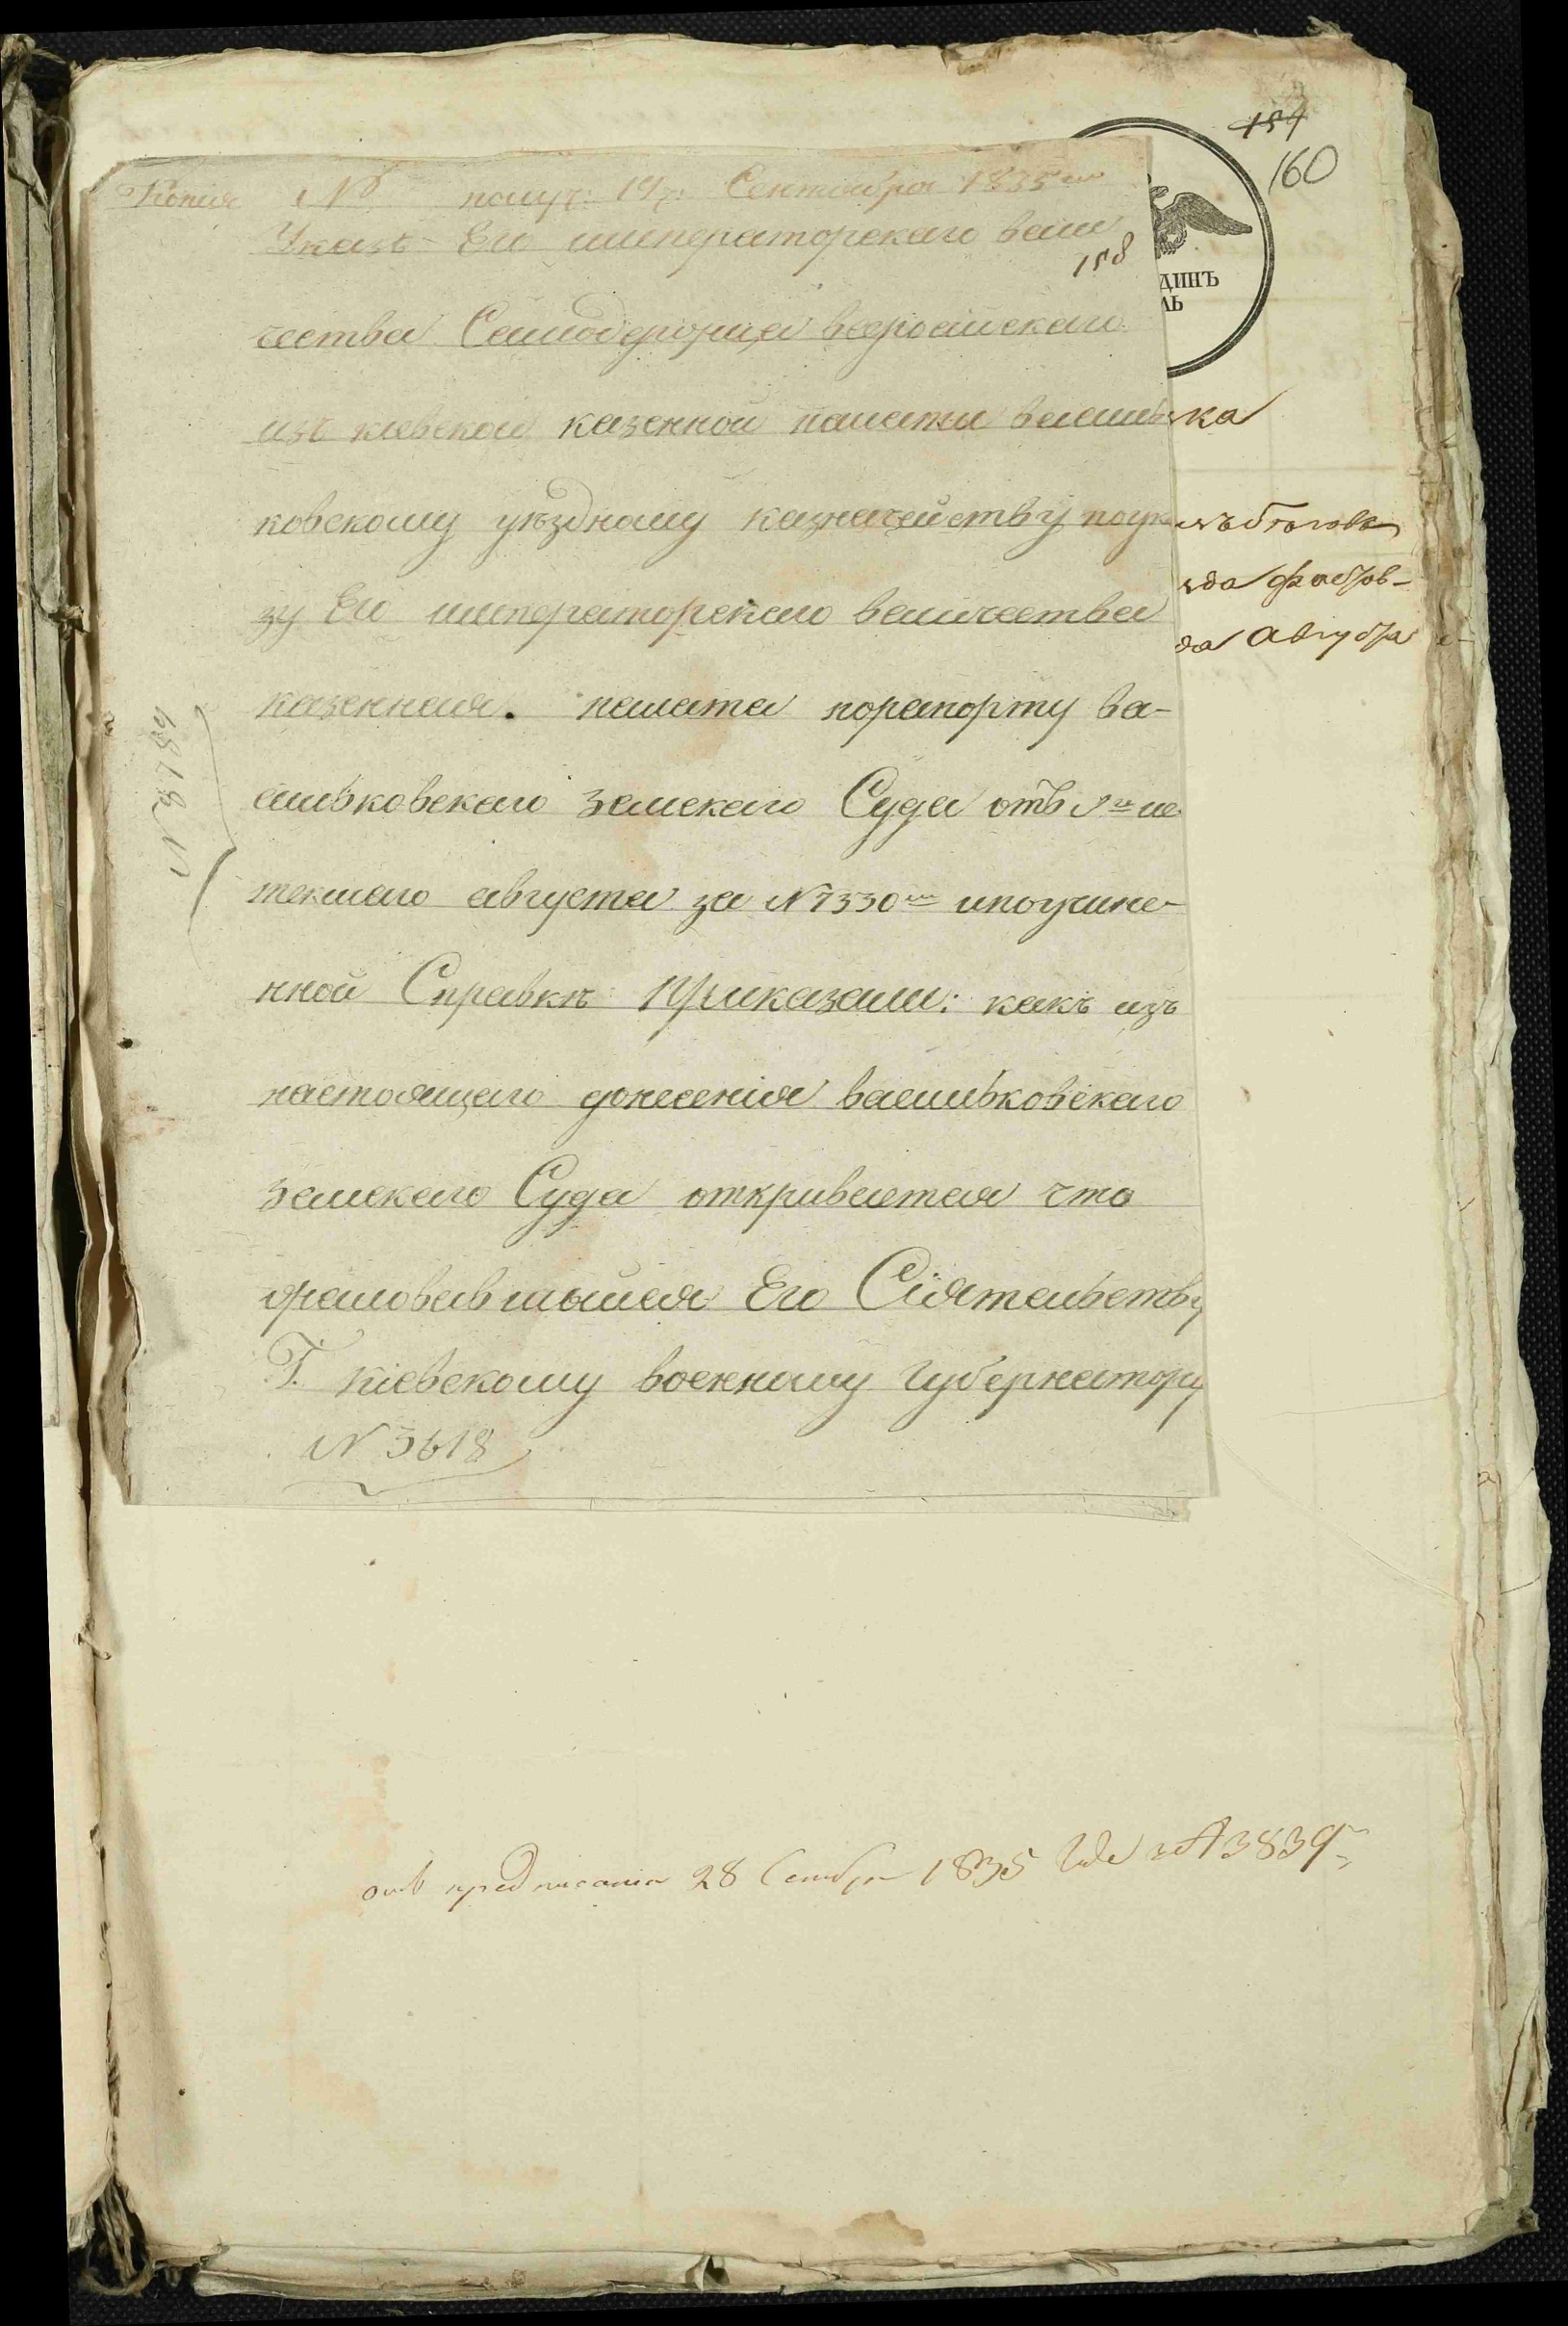 154
160
Копия № получ: 19: Сентября 1835го
Указъ Его императорскаго вели
158
чества Самодержца всеросийскаго
изъ киевской казенной палаты василь
ковскому уѣздному казначейству поука
зу Его императорскаго величества
казенная. палата порапорту ва-
сильковскаго земскаго Суда отъ 9го ис
текшаго августа за №7330м ипоучине-
нной Справкѣ Приказали: какъ изъ
настоящаго донесенія васильковскаго
земскаго Суда откривается что
жаловавшыйся Его Сіятельству
Г. кіевскому военному губернатору
№ 3618
№ 8784
ДИНЪ
ЛЬ
ка
да Августа
предписания 28 Сентбря 1835 3839